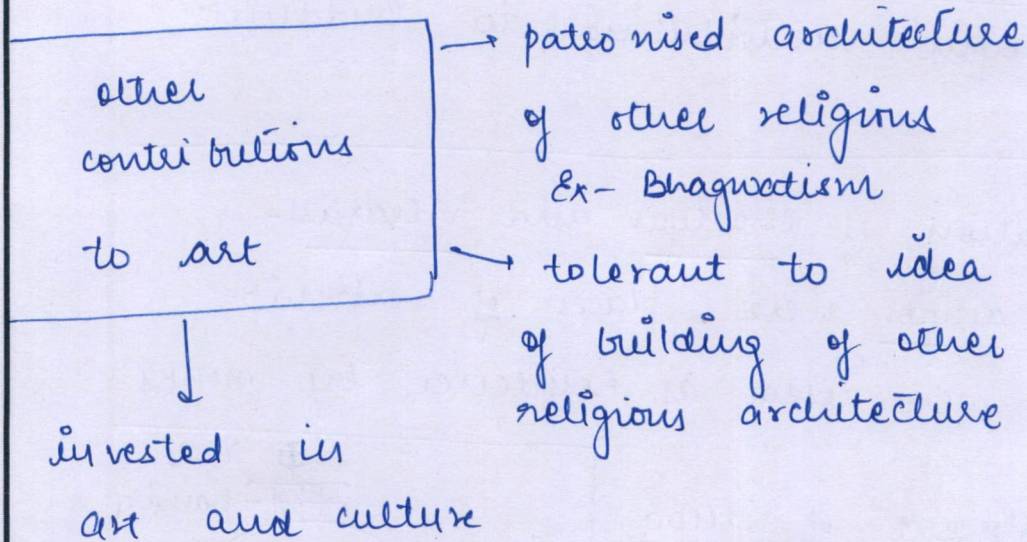 other
contributions
to art
→ patronised architecture
of other religions
Ex- Bhagwatism
→ tolerant to idea
of building of other
religious architecture
invested in
art and culture